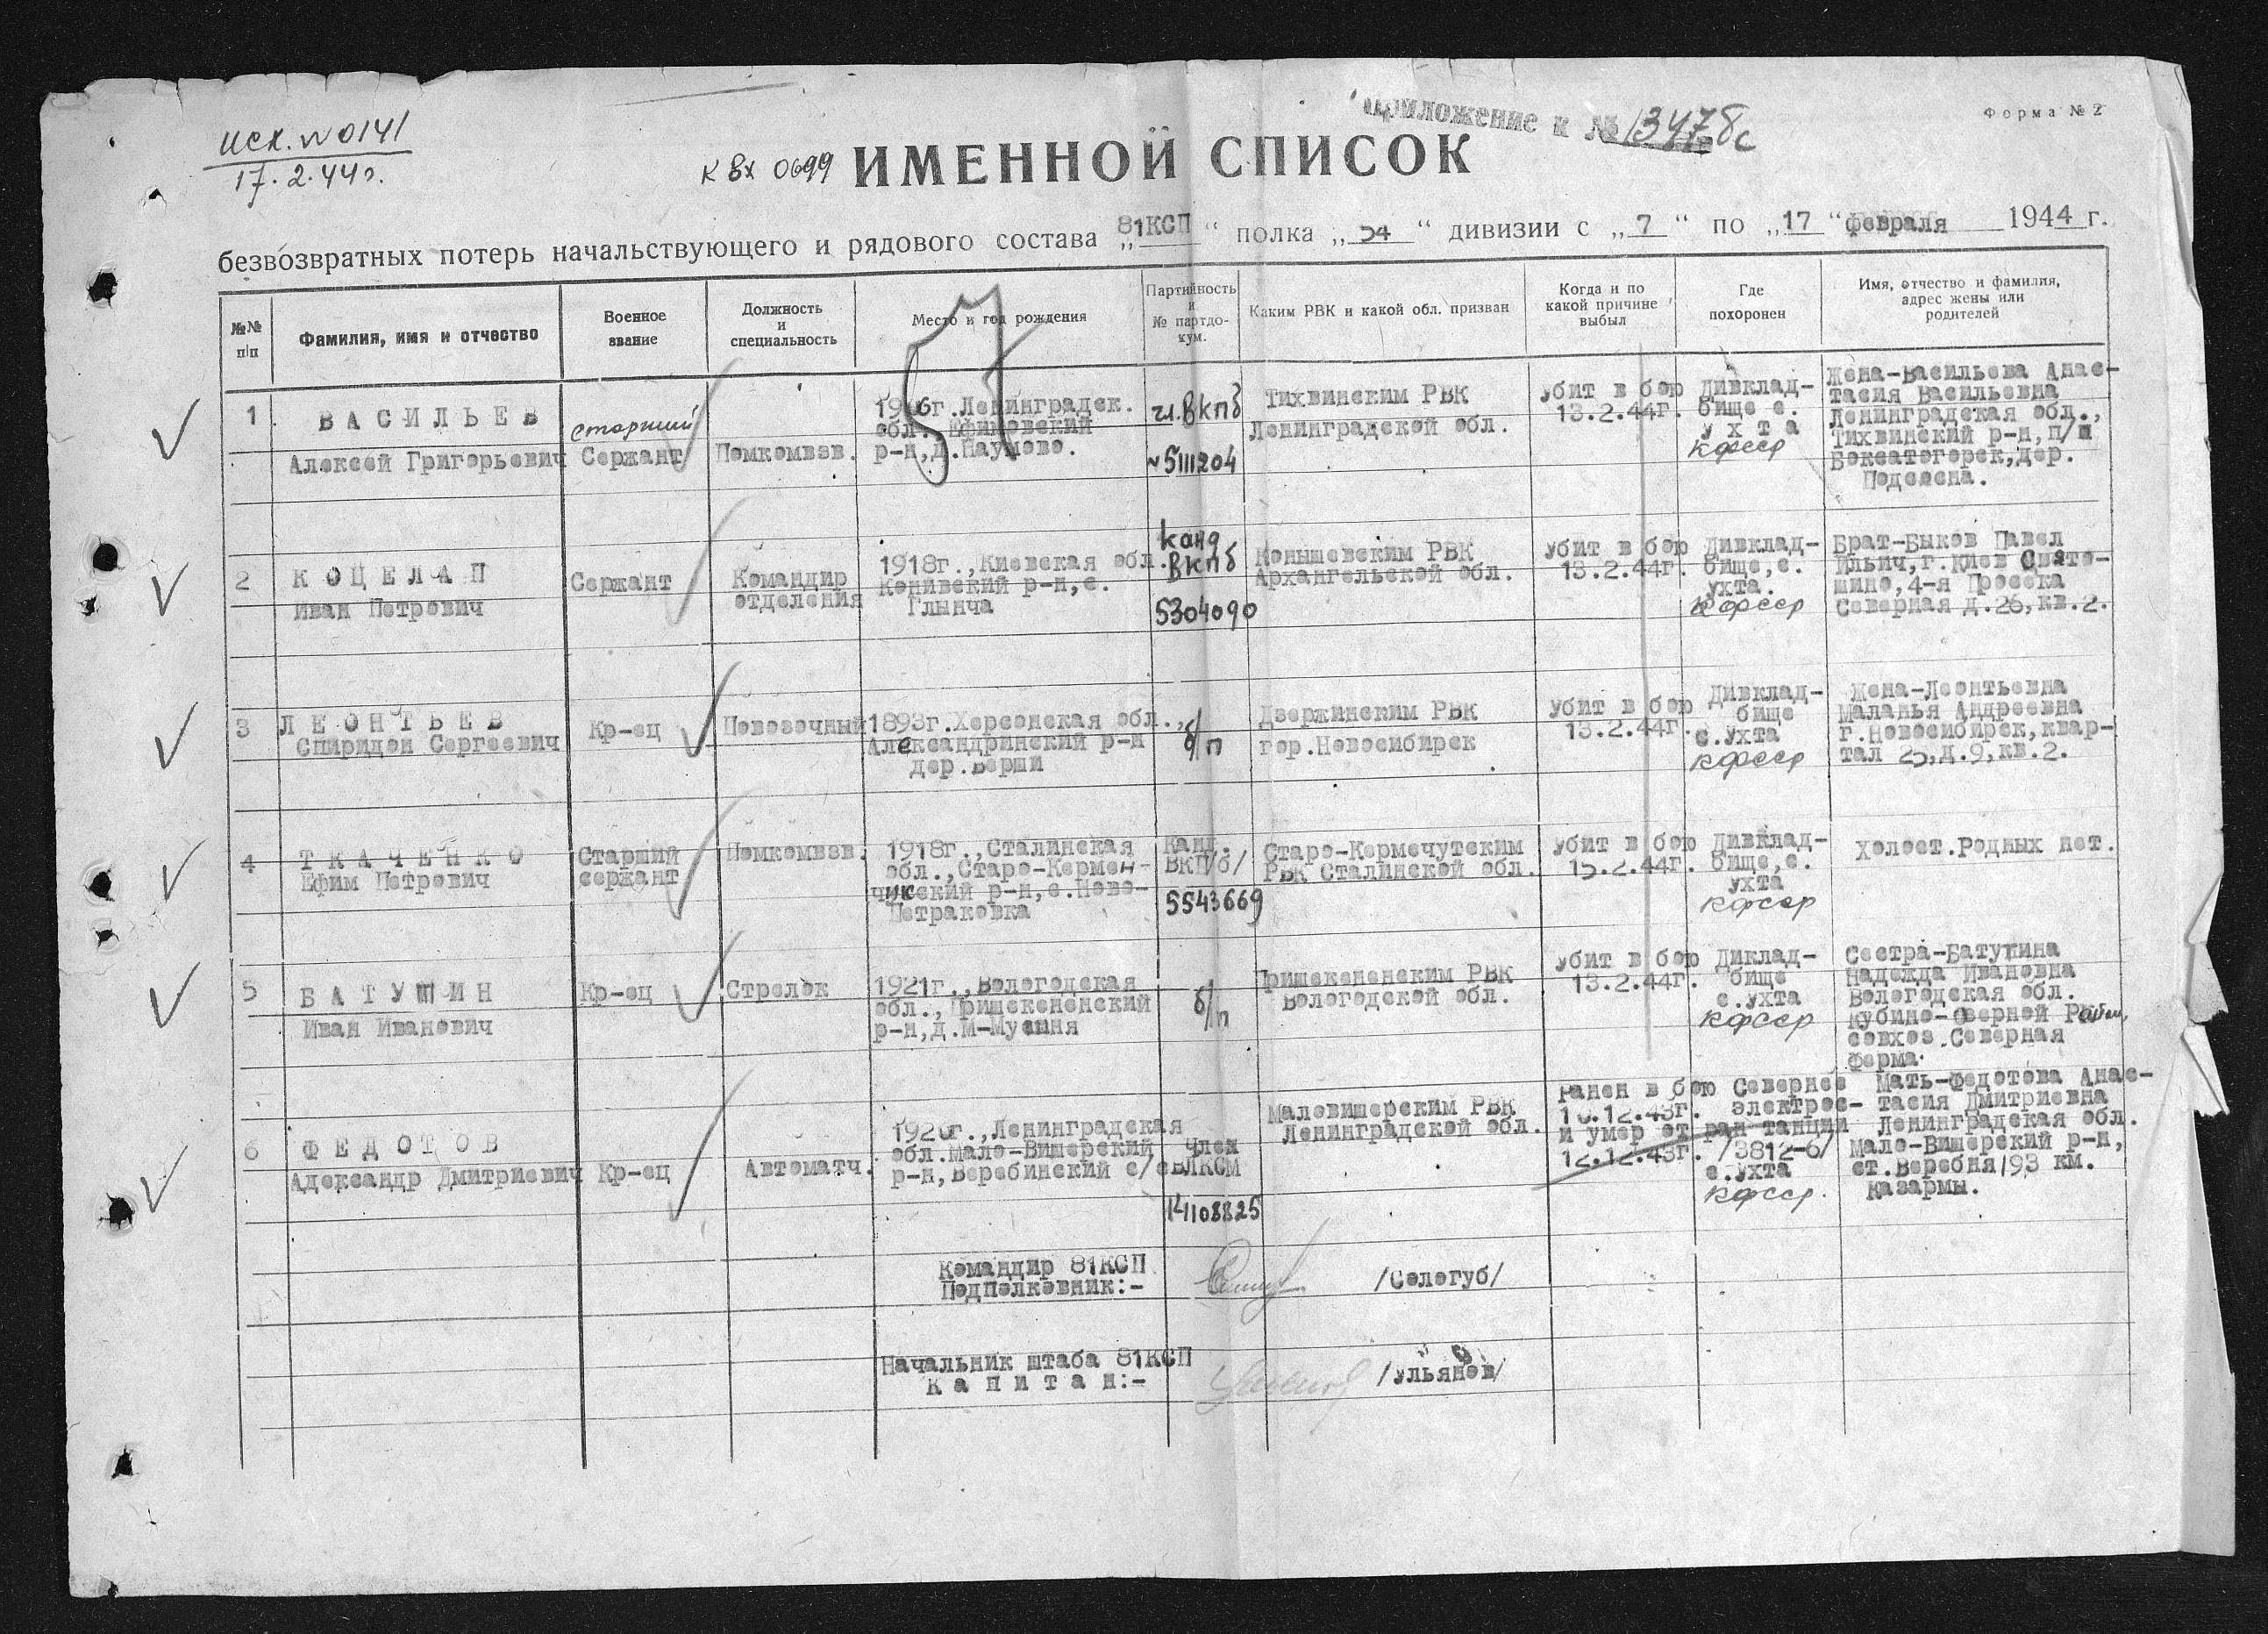 исх. № 0141
17.2.44г.
к вх 0699
Приложение к № 13478с
Форма № 2
ИМЕННОЙ СПИСОК
безвозвратных потерь начальствующего и рядового состава „81КСП“ полка „54“ дивизии с „7“ по „17“ февраля 1944 г.
№№ п/п
Фамилия, имя и отчество
Военное звание
Должность и специальность
Место и год рождения
Партийность и № партдокум.
Каким РВК и какой обл. призван
Когда и по какой причине выбыл
Где похоронен
Имя, отчество и фамилия, адрес жены или родителей
1
ВАСИЛЬЕВ
Алексей Григорьевич
старший
Сержант
Помкомвзв.
1906г.Ленинградск.
обл. Ефимовский
р-н,д.Наумово.
чл.ВКПб
№5111204
Тихвинским РВК
Ленинградской обл.
Убит в бою
13.2.44г.
Дивклад-
бище с.
Ухта
КФССР
Жена-Васильева Анас-
тасия Васильевна
Ленинградская обл.,
Тихвинский р-н,п/о
Боксатогорск,дер.
2
КОЦЕЛАП
Иван Петрович
Сержант
Командир
отделения
1918г.,Киевская обл.
р-н,с.
канд
ВКПб
5304090
РВК
Архангельской обл.
Убит в бою
13.2.44г.
Дивклад-
бище,с.
Ухта.
КФССР
Брат-Быков Павел
Ильич,г.Киев Свято-
шино,4-я Просека
Северная д.26,кв.2.
3
ЛЕОНТЬЕВ
Спиридон Сергеевич
Кр-ец
Повозочный
1893г.Херсонская обл.,
Александринский р-н
дер.Верши
б/п
Дзержинским РВК
гор.Новосибирск
Убит в бою
13.2.44г.
Дивклад-
бище
с.Ухта
КФССР
Жена-Леонтьевна
Маланья Андреевна
г.Новосибирск,квар-
тал 25,д.9,кв.2.
4
ТКАЧЕНКО
Ефим Петрович
Старший
сержант
Помкомвзв.
1918г.,Сталинская
обл.,Старо-Кермен-
чикский р-н,с.Ново-
Петраковка
Канд.
ВКП/б/
5543669
Старо-Кермечутским
РВК Сталинской обл.
Убит в бою
13.2.44г.
Дивклад-
бище,с.
Ухта
КФССР
Холост.Родных нет.
5
БАТУШИН
Иван Иванович
Кр-ец
Стрелок
1921г.,Вологодская
обл.,Пришексненский
р-н,д.М-Мусыня
б/п
Пришекененским РВК
Вологодской обл.
Убит в бою
13.2.44г.
Диклад-
бище
с.Ухта
КФССР
Сестра-Батушина
Надежда Ивановна
Вологодская обл.
Кубино-озерной Район,
совхоз.Северная
ферма.
6
ФЕДОТОВ
Александр Дмитриевич
Кр-ец
Автоматч.
1920г.,Ленинградская
обл.Мало-Вишерский
р-н,Веребинский с/с
Член
ВЛКСМ
14108825
Маловишерским РВК
Ленинградской обл.
Ранен в бою
10.12.43г.
и умер от ран
12.12.43г.
Севернее
электрос-
танции
/3812-б/
с.Ухта
КФССР.
Мать-Федотова Анас-
тасия Дмитриевна
Ленинградская обл.
Мало-Вишерский р-н,
ст.Веребня/93 км.
казармы.
Командир 81КСП
Подполковник:-
/Сологуб/
Начальник штаба 81КСП
Капитан:-
/Ульянов/